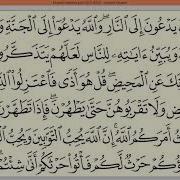 يَدْعُونَ إِلَى ٱلنَّارِ ۖ وَٱللَّهُ يَدْعُوٓا۟ إِلَى ٱلْجَنَّةِ وَ
وَيُبَيِّنُ ءَايَـٰتِهِۦ لِلنَّاسِ لَعَلَّهُمْ يَتَذَكَّرُو
عَنِ ٱلْمَحِيضِ ۖ قُلْ هُوَ أَذًى فَٱعْتَزِلُوا۟ ٱلنِّ
ضِ ۖ وَلَا تَقْرَبُوهُنَّ حَتَّىٰ يَطْهُرْنَ ۖ فَإِذَا تَطَهَّرْنَ
أَمَرَكُمُ ٱللَّهُ ۚ إِنَّ ٱللَّهَ يُحِبُّ ٱلتَّوَّٰبِينَ وَيُحِبُّ
ؤُكُمْ حَرْثٌ لَّكُمْ فَأْتُوا۟ حَرْثَكُمْ أَنَّىٰ شِئْتُمْ